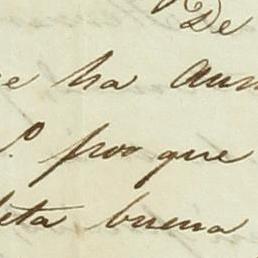 De
e ha aun
º. por que
leta buena